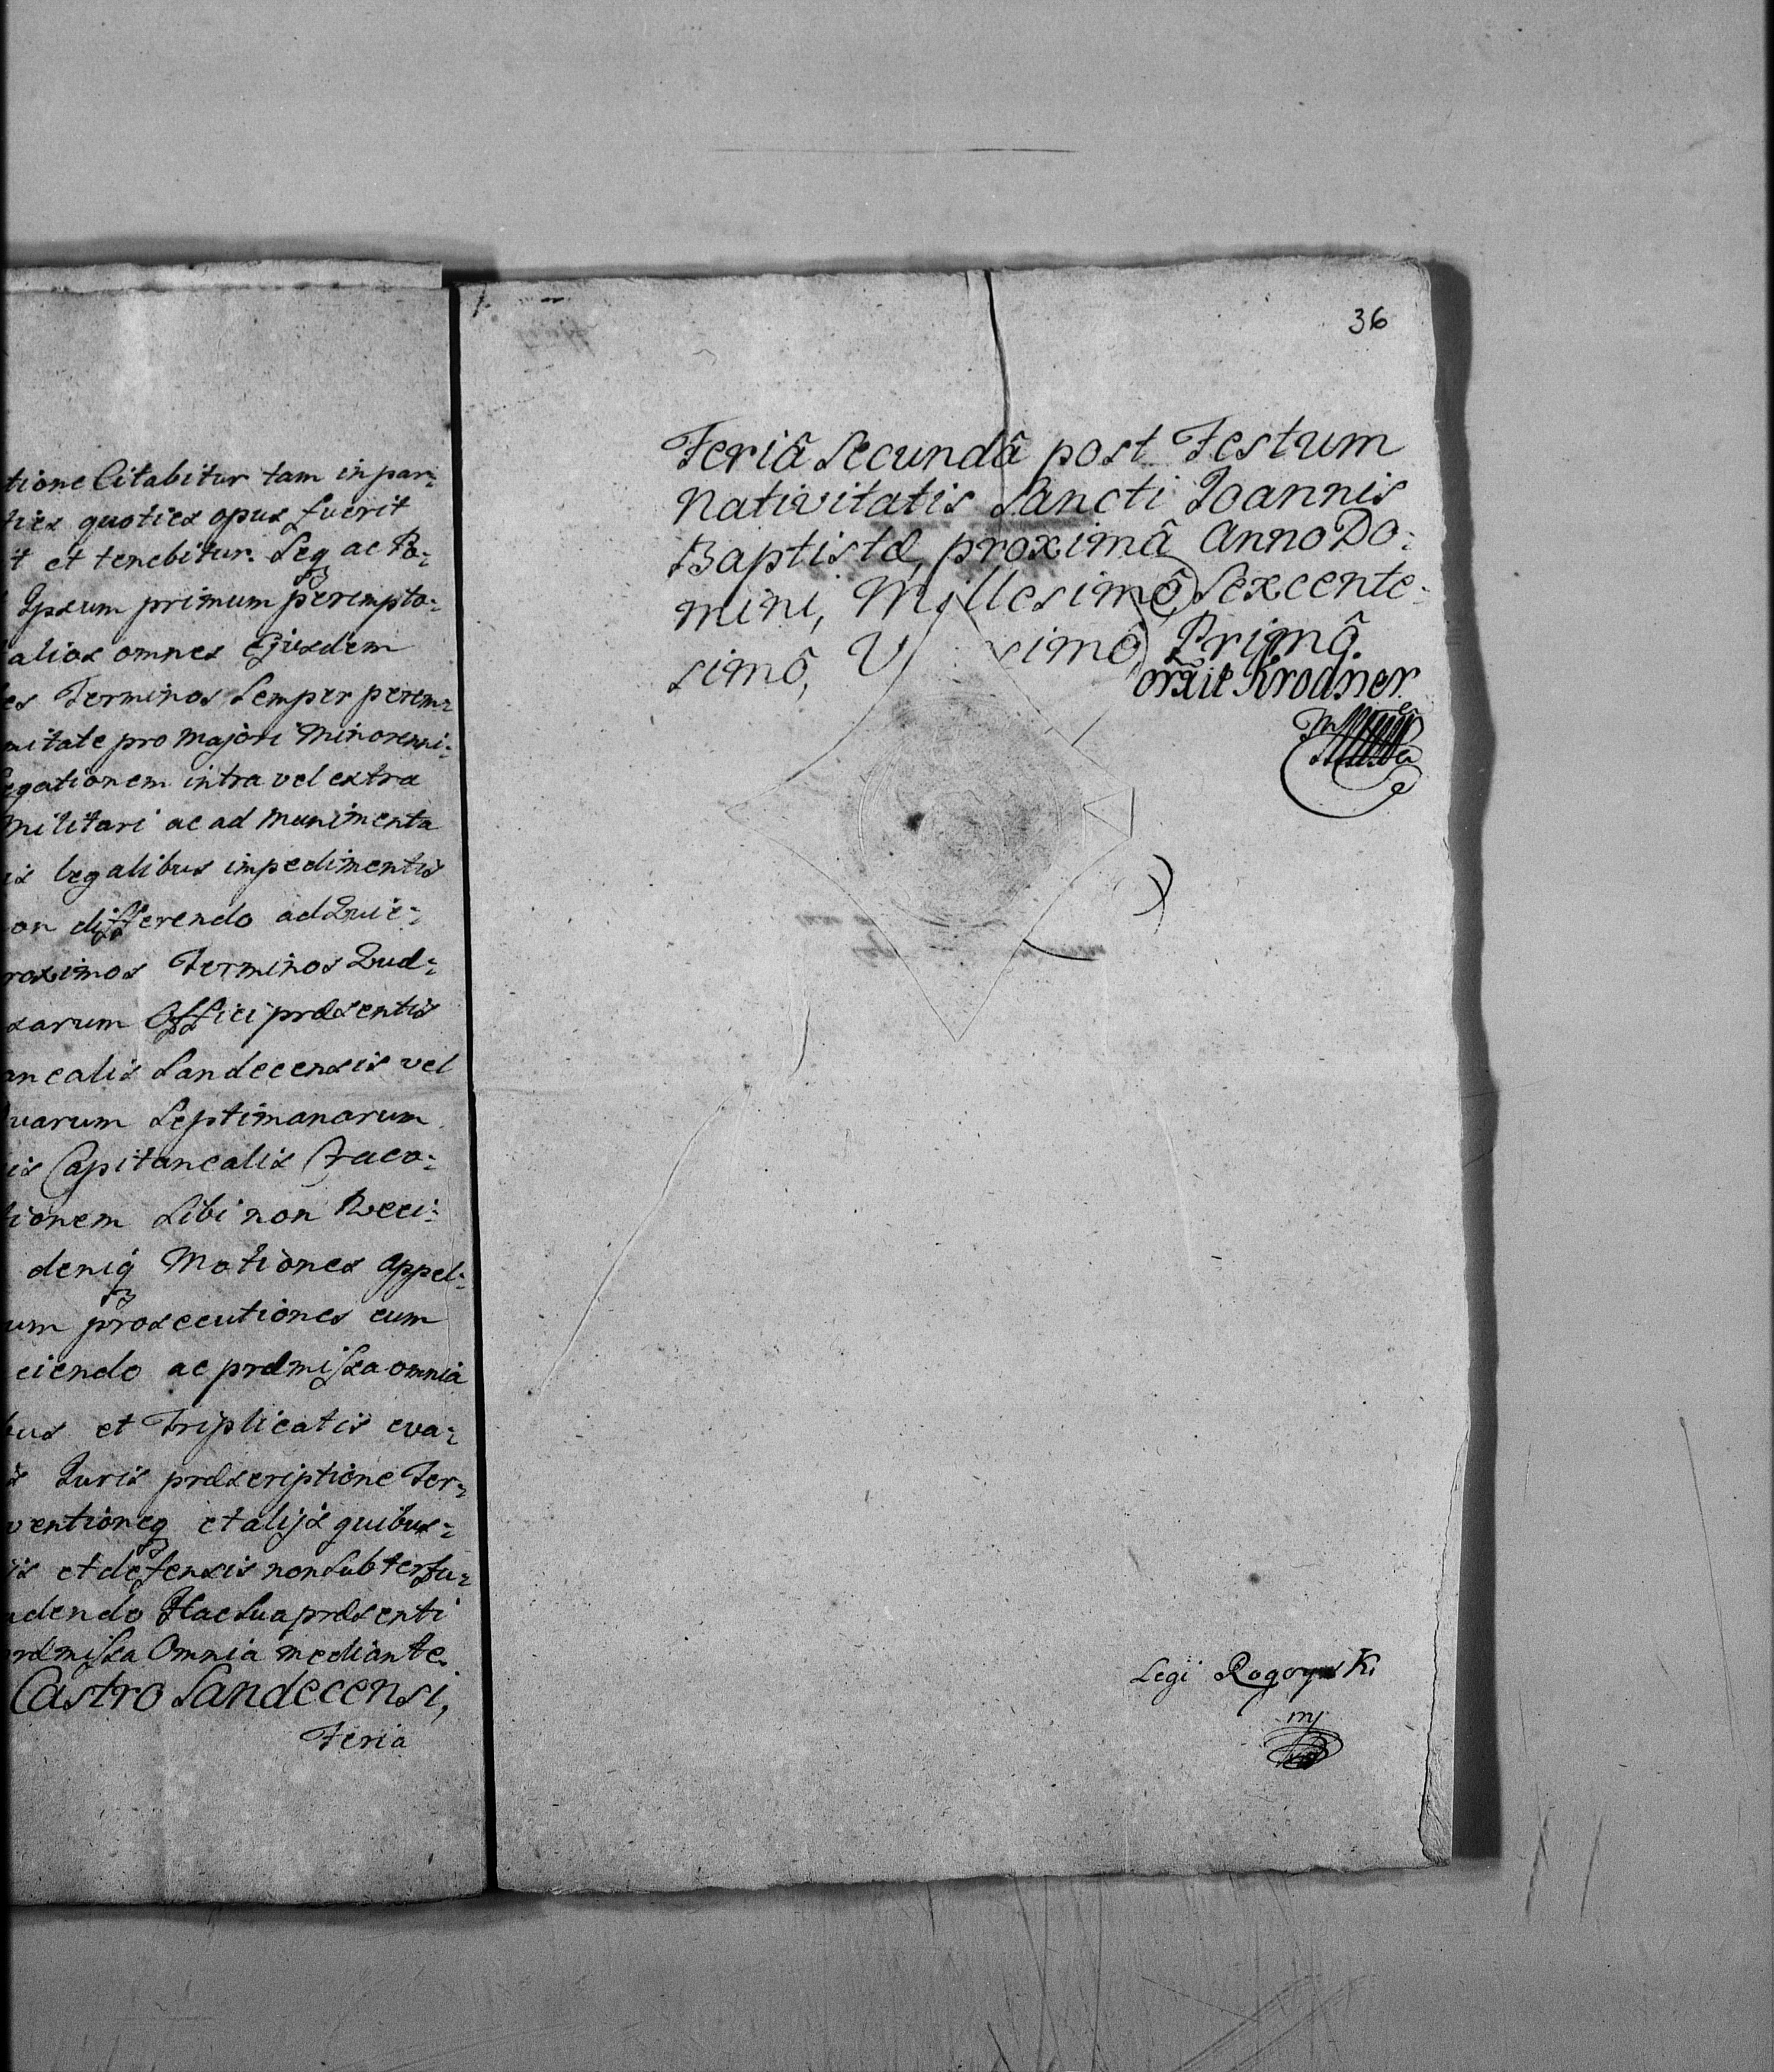 tione Citabitur tam in par:
ties quoties opus fuerit
t et tenebitur. Seq ac Po:
Ipsum primum perempto:
alios omnes Ejusdem
es Terminos Semper perem:
nitate pro majori Minorenni:
egationem intra vel extra
Militari ac ad Munimenta
is legalibus impedimentis
on differendo ad
roximos Terminos Jud:
sarum Offici præsentis
anealis Sandecensis vel
uarum Septimanarum
is Capitanealis Craco:
tionem Sibi non Reci:
deniq Motiones appel:
um prosecutiones cum
ciendo ac præmissa omnia
bus et Triplicatis eva:
s Juris præscriptione Ter:
ventioneq et alijs quibus:
is et defensis non Subterfu:
dendo Hac Sua præsenti
præmissa Omnia mediante.
Castro Sandecensi,
Feria
36
Feriâ Secundâ post Festum
Nativitatis Sancti Joannis
Baptistæ, proximâ Anno Do:
mini, Millesimô Sexcente:
simô, V simô Primô.
Krodner
Legi Rogoyski